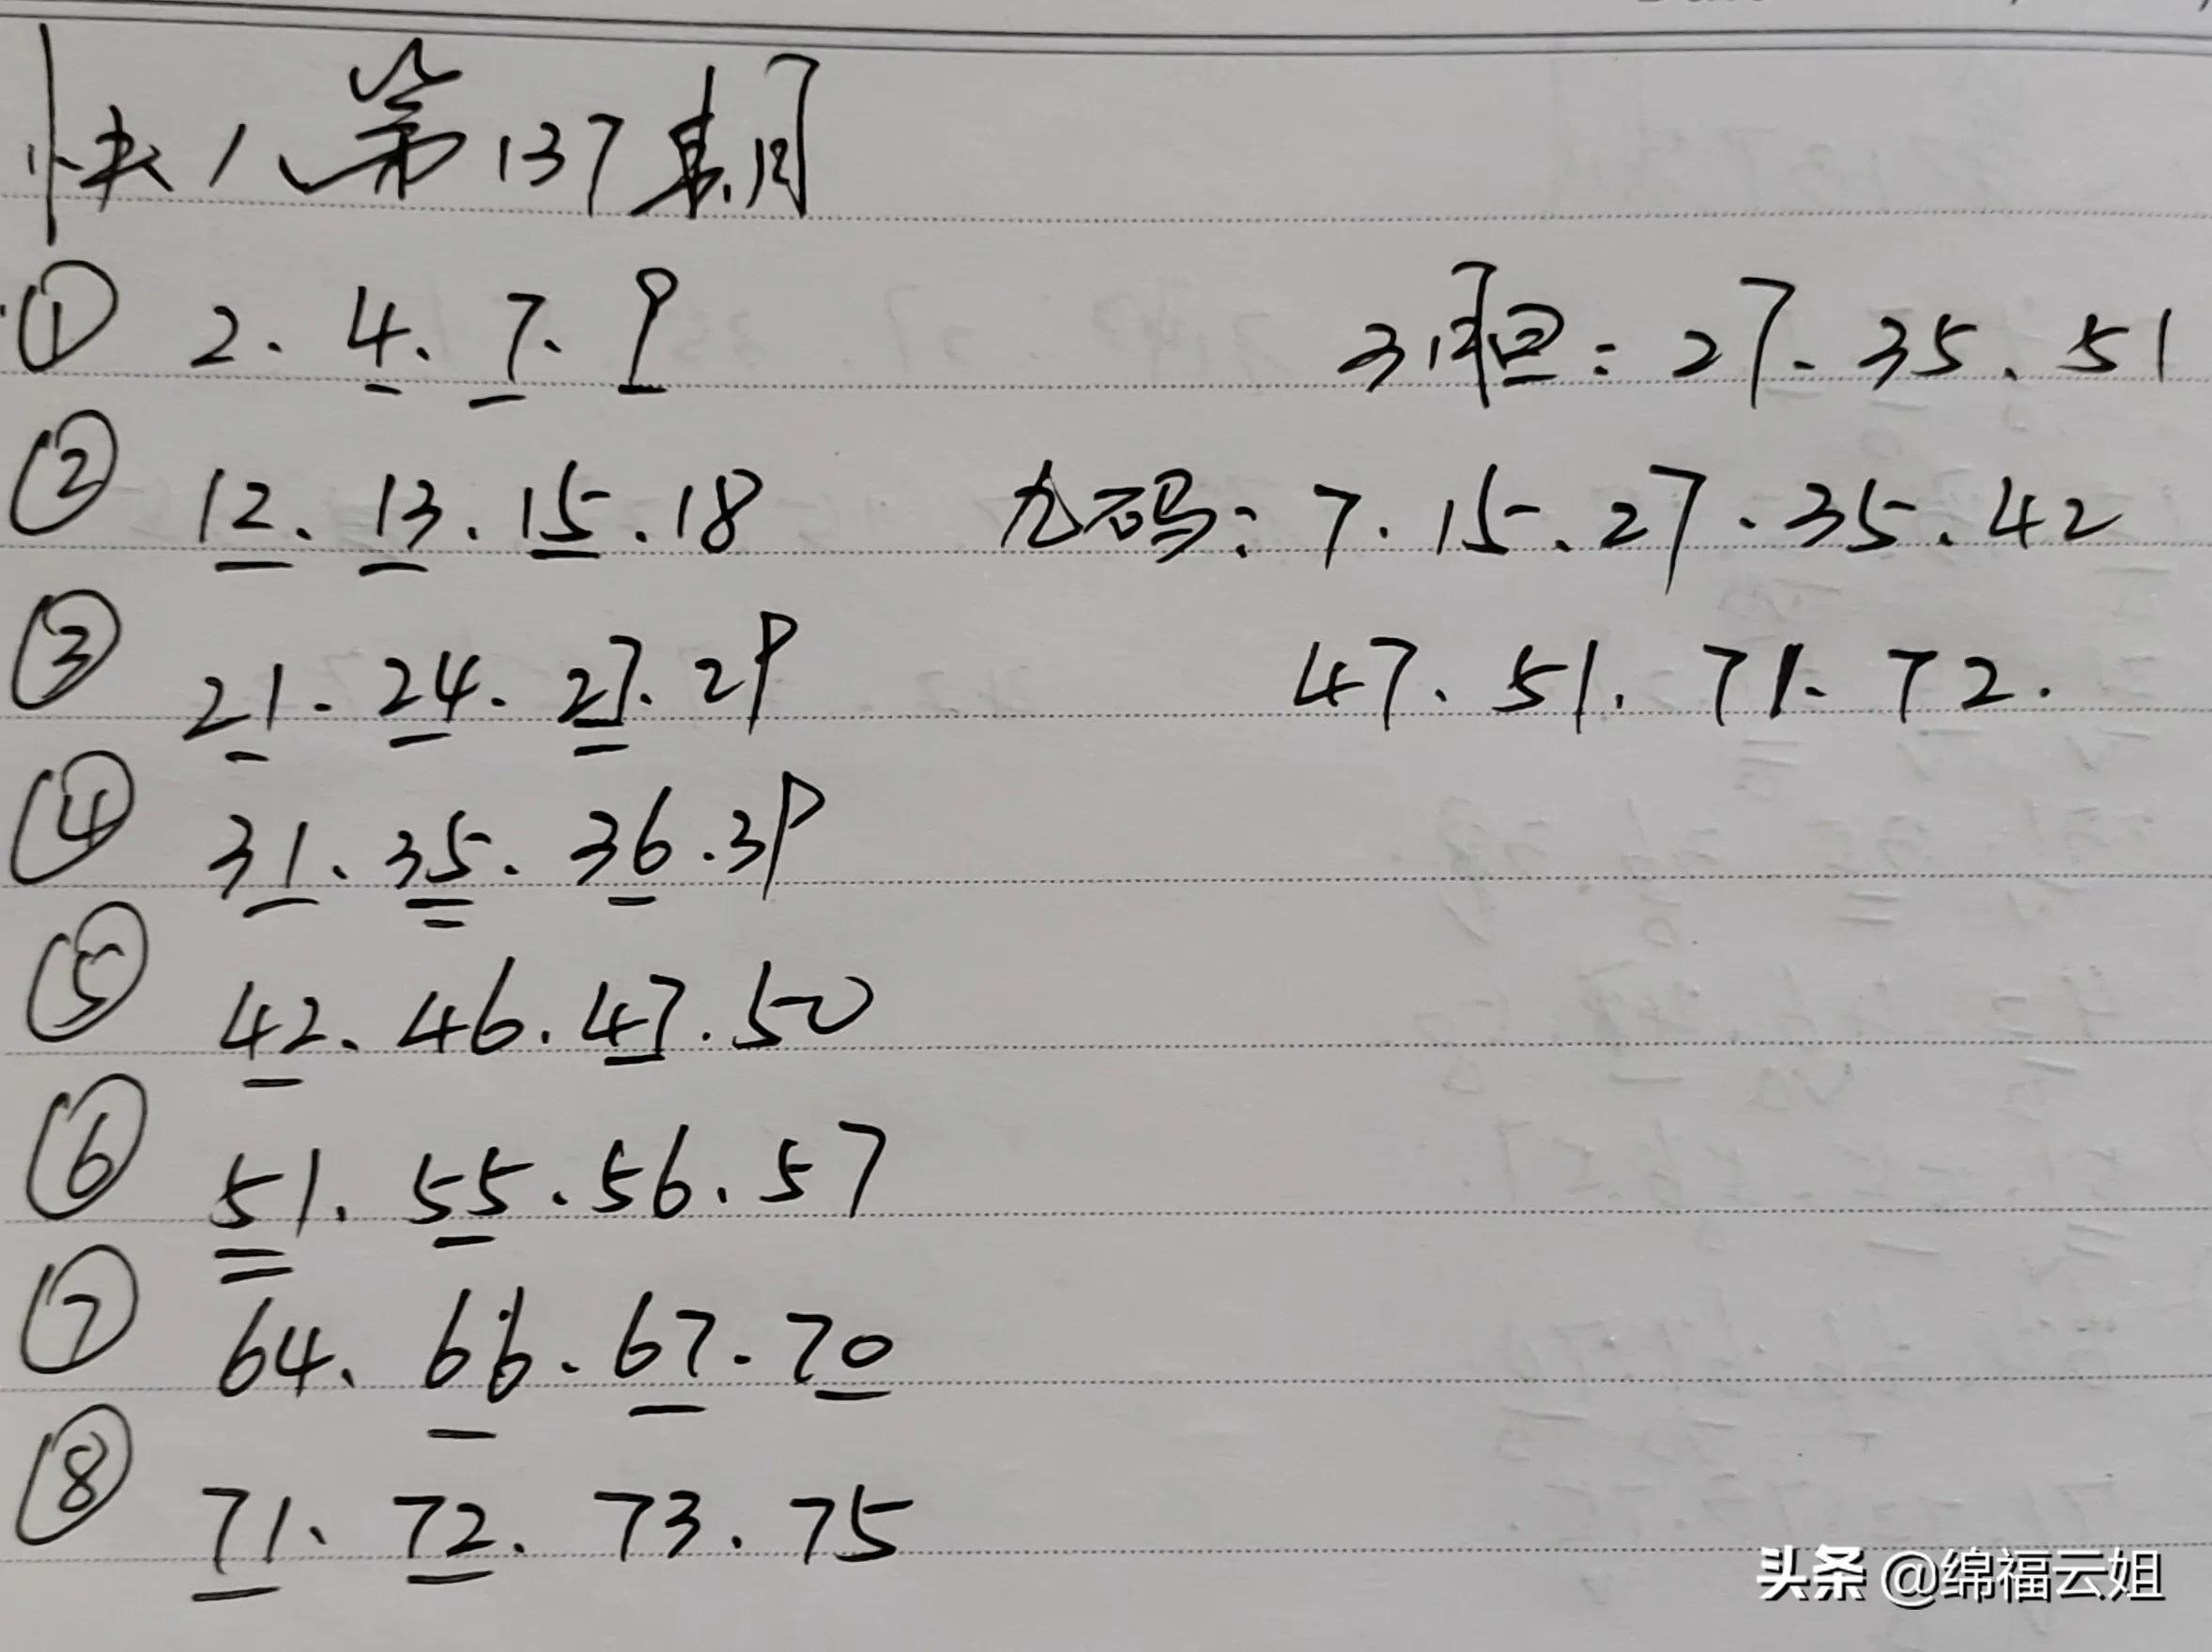 快八第137期
① 2. 4. 7. 9
3胆: 27. 35. 51
② 12. 13. 15. 18
九码: 7. 15. 27. 35. 42
③ 21. 24. 27. 29
47. 51. 71. 72.
④ 31. 35. 36. 39
⑤ 42. 46. 47. 50
⑥ 51. 55. 56. 57
⑦ 64. 66. 67. 70
⑧ 71. 72. 73. 75
头条 @绵福云姐